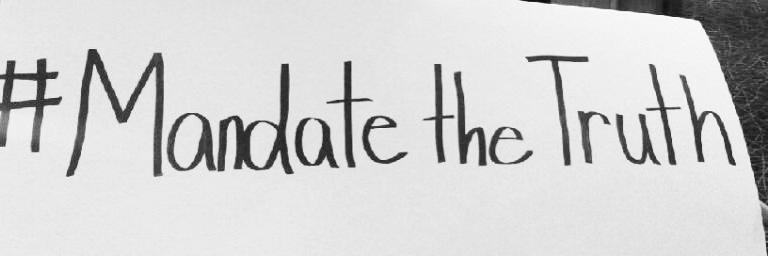 #Mandate the Truth